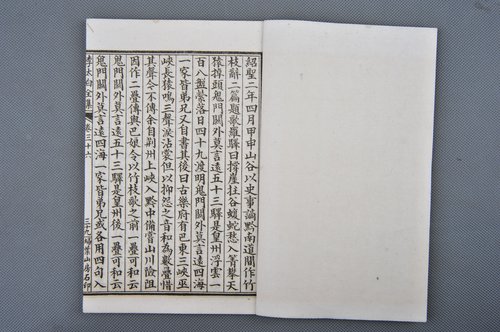 紹聖二年四月甲申山谷以史事謫黔南道間作竹
枝辭二篇題歌羅驛曰撐崖拄谷蝮蛇愁入箐攀天
猿掉頭鬼門關外莫言遠五十三驛是皇州浮雲一
百八盤縈落日四十九渡明鬼門關外莫言遠四海
一家皆弟兄又自書其後曰古樂府有巴東三峽巫
峽長猿鳴三聲淚沾裳但以抑怨之音和為數疊惜
其聲今不傳余自荊州上峽入黔中備嘗山川險阻
因作二疊傳與巴娘令以竹枝歌之前一疊可和云
鬼門關外莫言遠五十三驛是皇州後一疊可和云
鬼門關外莫言遠四海一家皆弟兄或各用四句入
李太白全集 卷三十六 三十九 掃葉山房石印